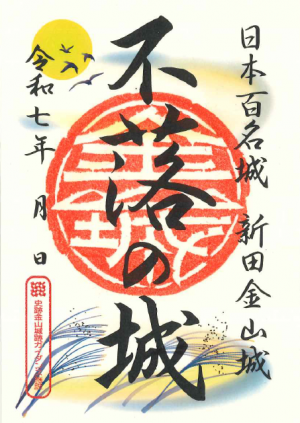 日本百名城 新田金山城
不落の城
令和七年 月 日
史跡金山城跡ガイダンス施設